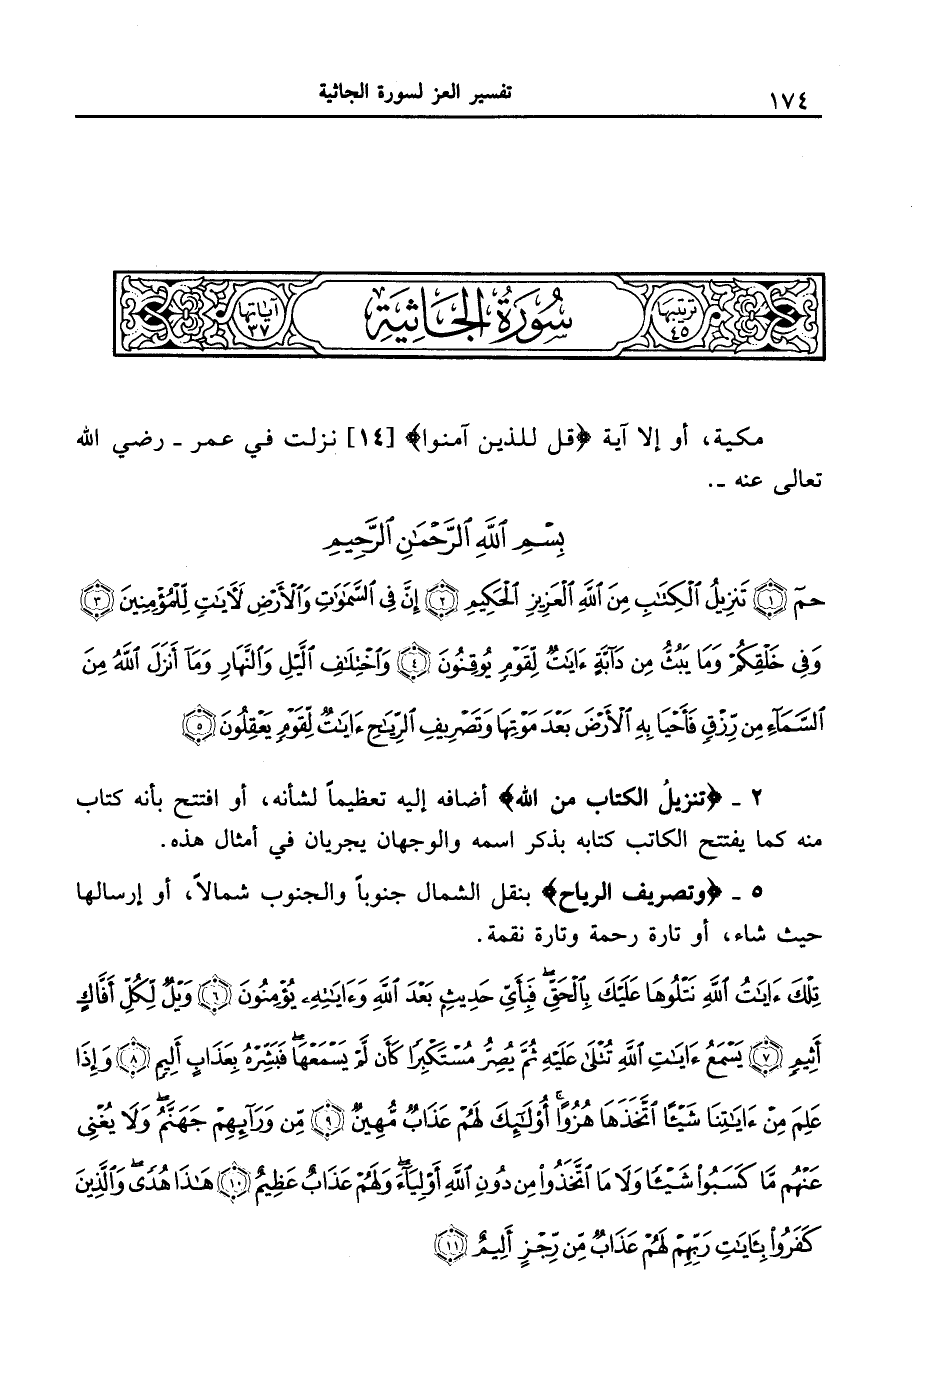 ١٧٤
تفسير العز لسورة الجاثية
ترتيبها ٤٥
سُورَةُ الجَاثِيَة
آياتها ٣٧
مكية، أو إلا آية ﴿قل للذين آمنوا﴾ [١٤] نزلت في عمر ـ رضي الله
تعالى عنه ـ.
بِسْمِ ٱللَّهِ ٱلرَّحْمَٰنِ ٱلرَّحِيمِ
حمٓ ﴿١﴾ تَنزِيلُ ٱلْكِتَٰبِ مِنَ ٱللَّهِ ٱلْعَزِيزِ ٱلْحَكِيمِ ﴿٢﴾ إِنَّ فِى ٱلسَّمَٰوَٰتِ وَٱلْأَرْضِ لَءَايَٰتٍ لِّلْمُؤْمِنِينَ ﴿٣﴾
وَفِى خَلْقِكُمْ وَمَا يَبُثُّ مِن دَآبَّةٍ ءَايَٰتٌ لِّقَوْمٍ يُوقِنُونَ ﴿٤﴾ وَٱخْتِلَٰفِ ٱلَّيْلِ وَٱلنَّهَارِ وَمَآ أَنزَلَ ٱللَّهُ مِنَ
ٱلسَّمَآءِ مِن رِّزْقٍ فَأَحْيَا بِهِ ٱلْأَرْضَ بَعْدَ مَوْتِهَا وَتَصْرِيفِ ٱلرِّيَٰحِ ءَايَٰتٌ لِّقَوْمٍ يَعْقِلُونَ ﴿٥﴾
٢ ـ ﴿تنزيلُ الكتاب من الله﴾ أضافه إليه تعظيماً لشأنه، أو افتتح بأنه كتاب
منه كما يفتتح الكاتب كتابه بذكر اسمه والوجهان يجريان في أمثال هذه.
٥ ـ ﴿وتصريف الرياح﴾ بنقل الشمال جنوباً والجنوب شمالاً، أو إرسالها
حيث شاء، أو تارة رحمة وتارة نقمة.
تِلْكَ ءَايَٰتُ ٱللَّهِ نَتْلُوهَا عَلَيْكَ بِٱلْحَقِّ ۖ فَبِأَىِّ حَدِيثٍۭ بَعْدَ ٱللَّهِ وَءَايَٰتِهِۦ يُؤْمِنُونَ ﴿٦﴾ وَيْلٌ لِّكُلِّ أَفَّاكٍ
أَثِيمٍ ﴿٧﴾ يَسْمَعُ ءَايَٰتِ ٱللَّهِ تُتْلَىٰ عَلَيْهِ ثُمَّ يُصِرُّ مُسْتَكْبِرًا كَأَن لَّمْ يَسْمَعْهَا ۖ فَبَشِّرْهُ بِعَذَابٍ أَلِيمٍ ﴿٨﴾ وَإِذَا
عَلِمَ مِنْ ءَايَٰتِنَا شَيْـًٔا ٱتَّخَذَهَا هُزُوًا ۚ أُو۟لَٰٓئِكَ لَهُمْ عَذَابٌ مُّهِينٌ ﴿٩﴾ مِّن وَرَآئِهِمْ جَهَنَّمُ ۖ وَلَا يُغْنِى
عَنْهُم مَّا كَسَبُوا۟ شَيْـًٔا وَلَا مَا ٱتَّخَذُوا۟ مِن دُونِ ٱللَّهِ أَوْلِيَآءَ ۖ وَلَهُمْ عَذَابٌ عَظِيمٌ ﴿١٠﴾ هَٰذَا هُدًى ۖ وَٱلَّذِينَ
كَفَرُوا۟ بِـَٔايَٰتِ رَبِّهِمْ لَهُمْ عَذَابٌ مِّن رِّجْزٍ أَلِيمٌ ﴿١١﴾